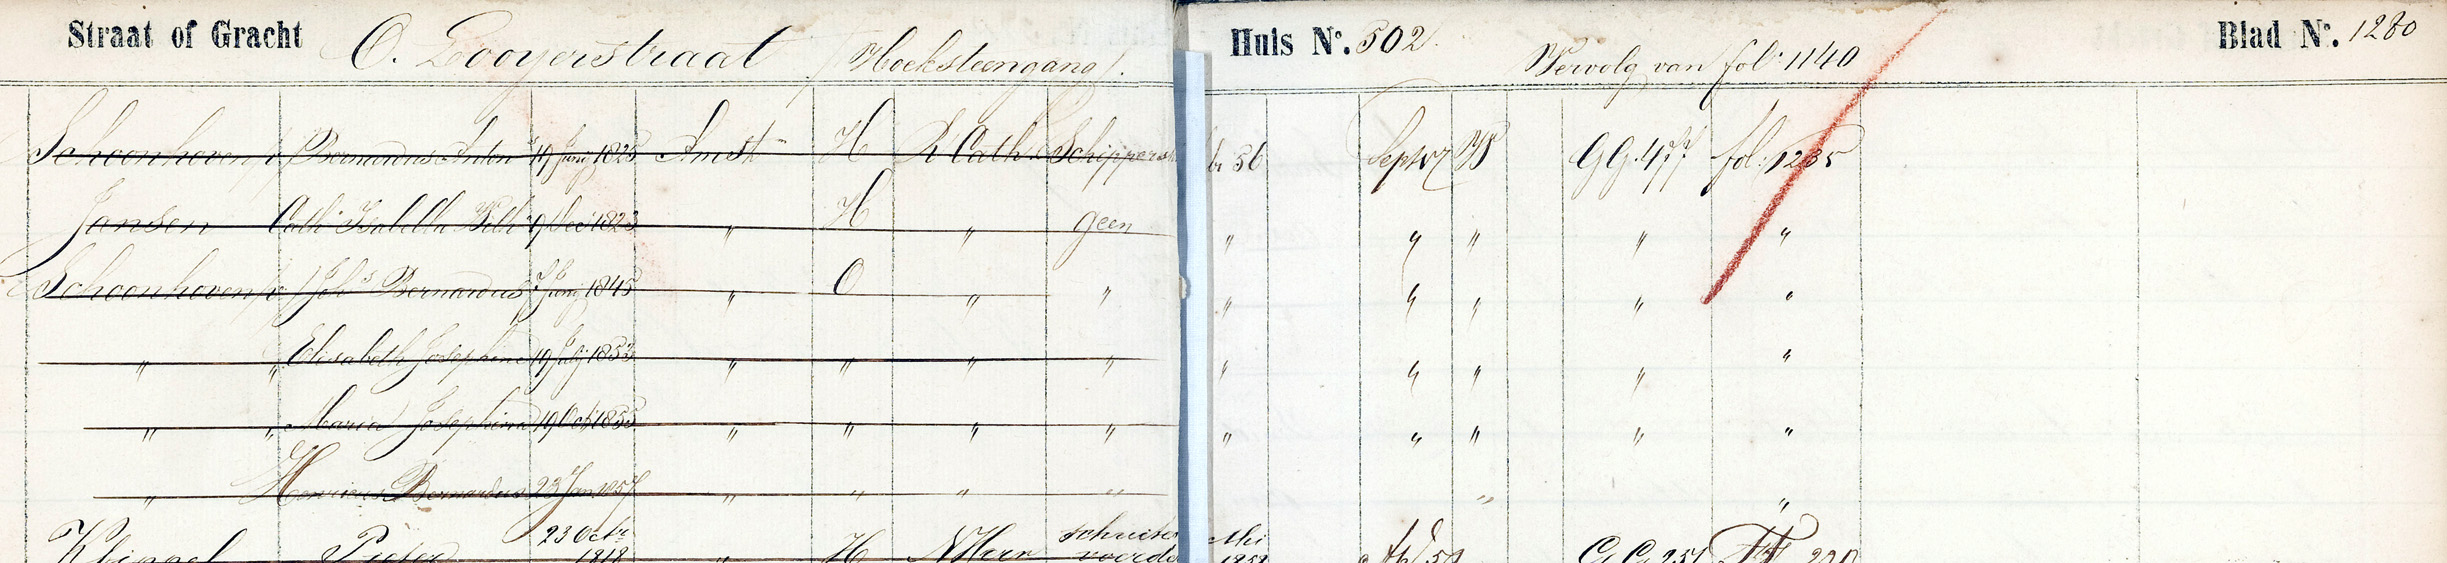 Straat of Gracht O. Looyerstraat (Hoeksteengang). Huis No. 502. Vervolg van fol: 1140 Blad No. 1280
Schoonhoven v. Bernardus Anton 19 Junij 1825 Amstm H R Cath Schippersk 56 Septr 57 GG. 477 fol: 1235
Jansen Cath Isabella Wilh 9 Dec 1823 " H " geen " " " " "
Schoonhoven v. Johs Bernardus 7 Junij 1845 " O " " " " " " "
" " Elisabeth Josephina 19 Julij 1853 " " " " " " " " "
" " Maria Josephina 19 Oct 1855 " " " " " " " " "
" Henricus Bernardus 23 Jan 1857 " " " " " "
Klippel Pieter 23 Octr 1818 " H NHerv schuitenvoerder Mei 1858 59 GG 251 220